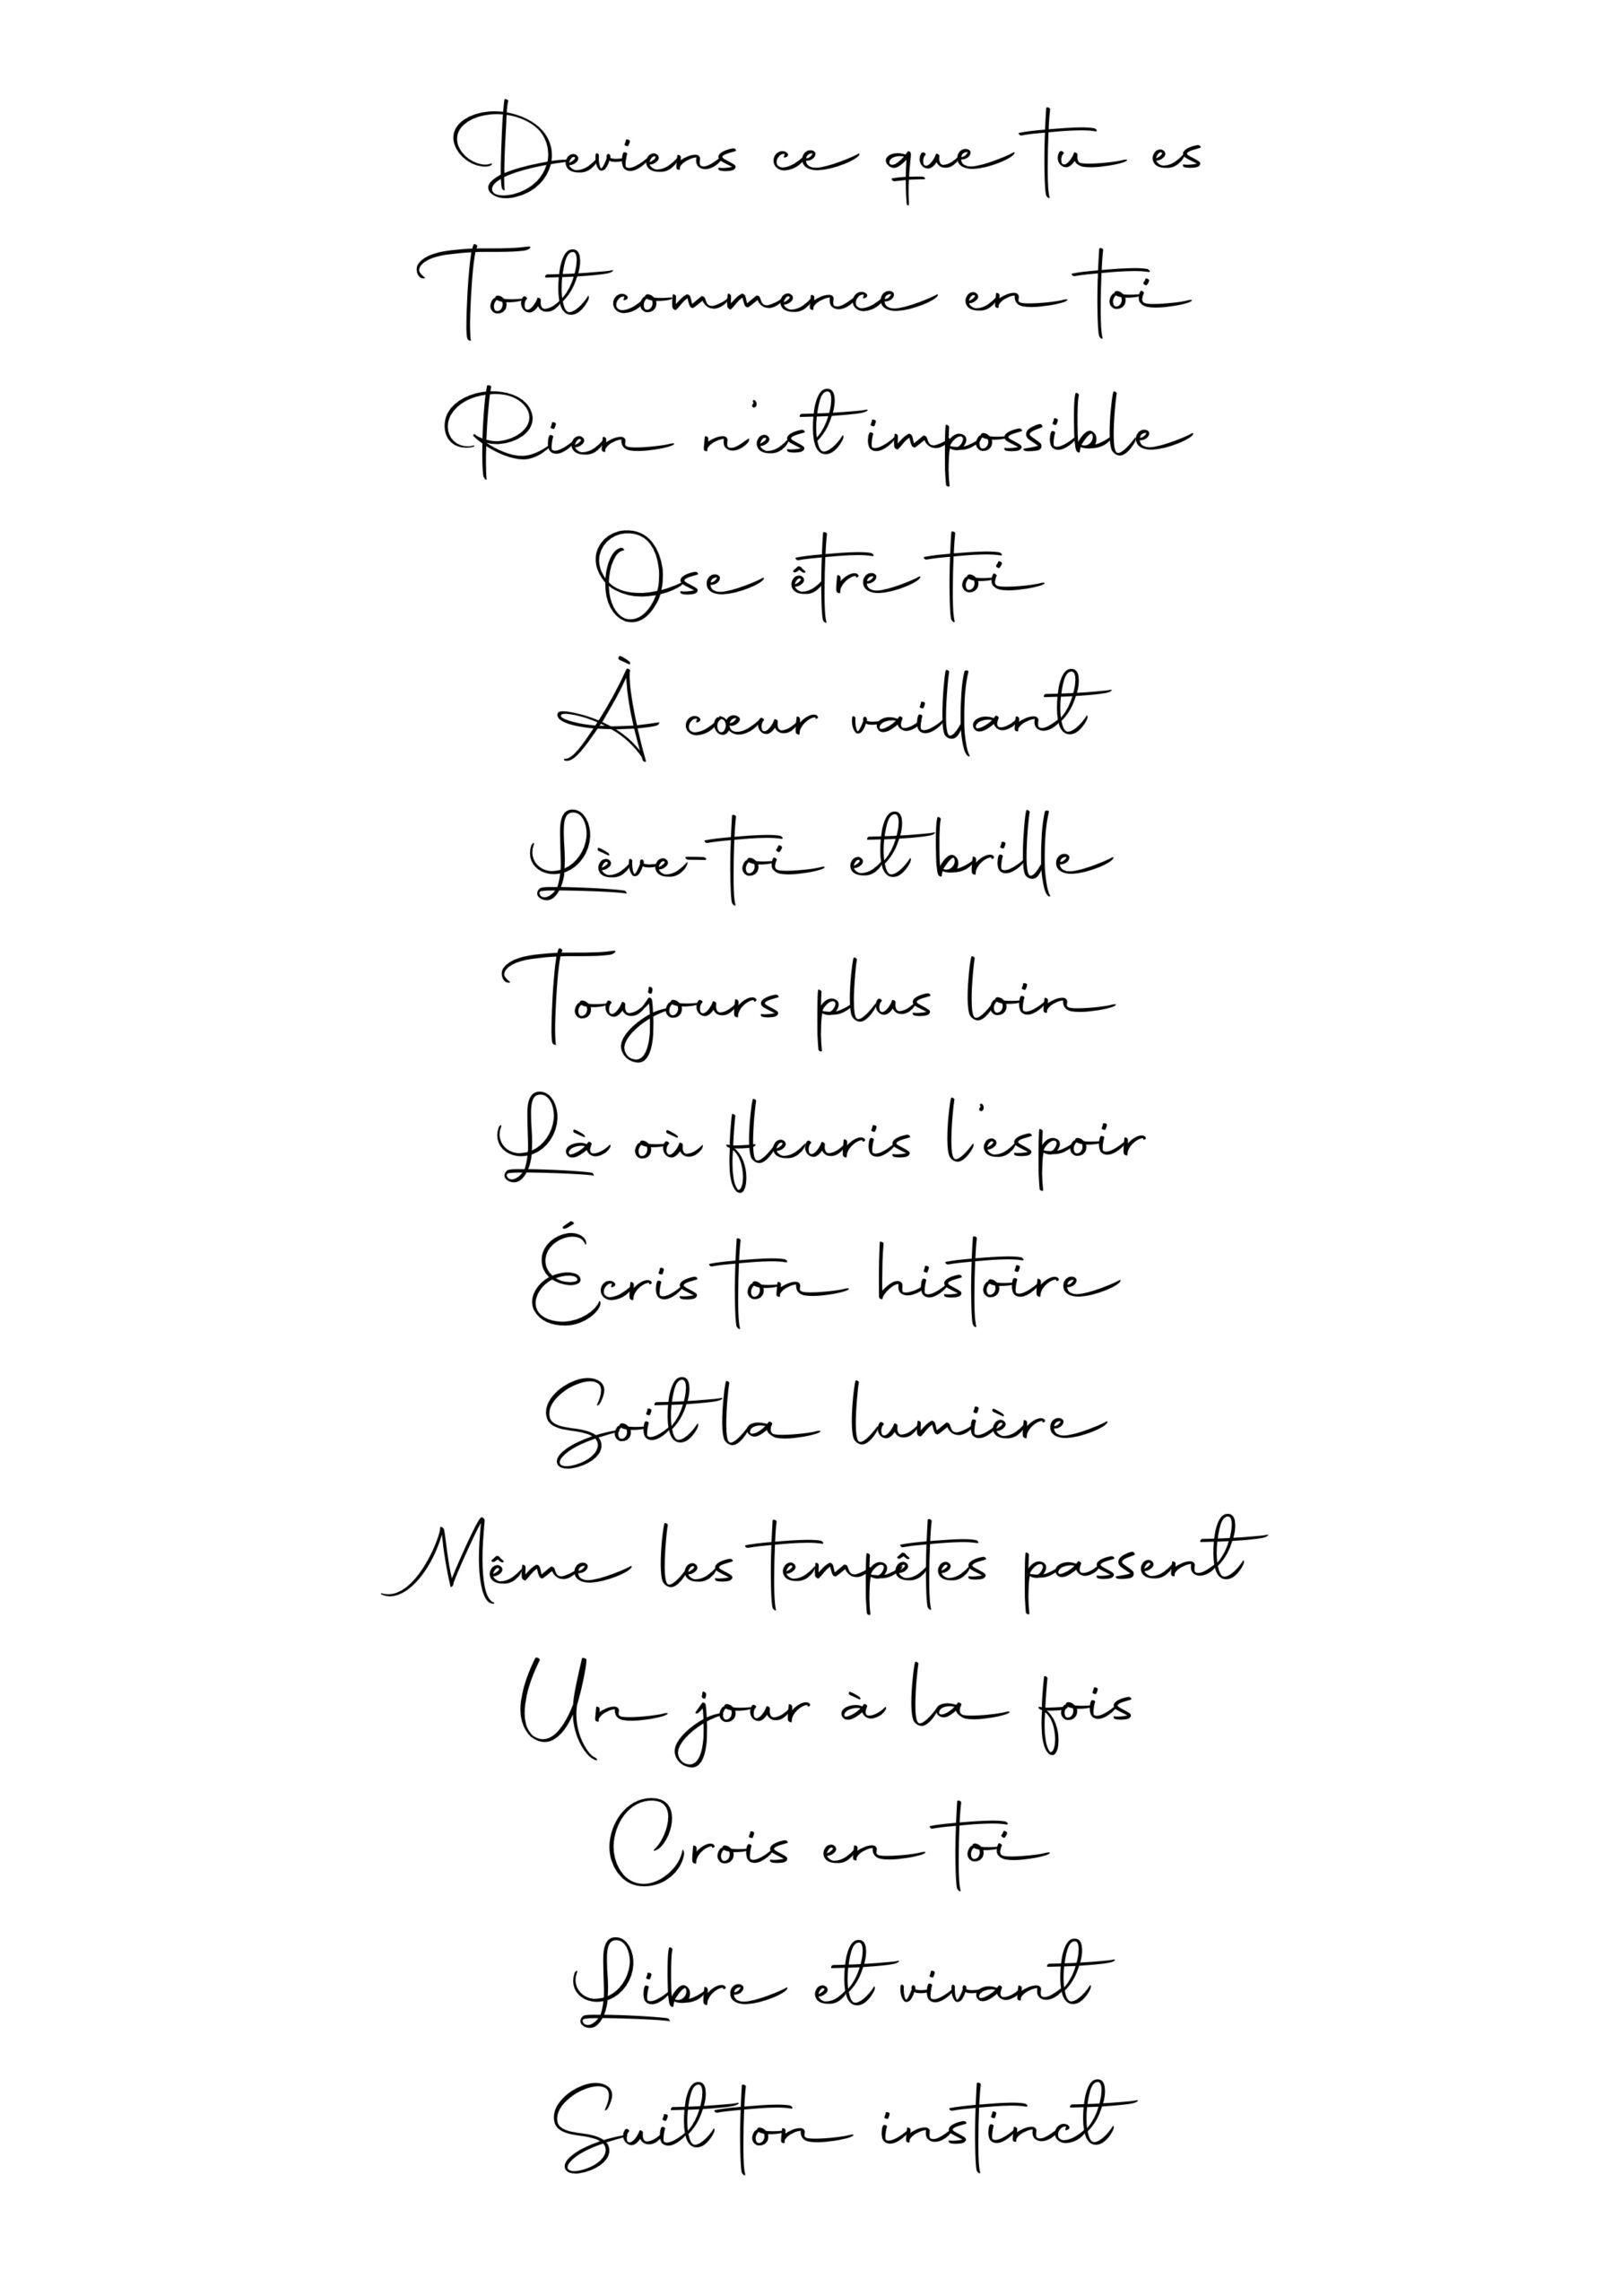 Deviens ce que tu es
Tout commence en toi
Rien n'est impossible
Ose être toi
À cœur vaillant
Lève-toi et brille
Toujours plus loin
Là où fleuris l'espoir
Écris ton histoire
Soit la lumière
Même les tempêtes passent
Un jour à la fois
Crois en toi
Libre et vivant
Suit ton instinct